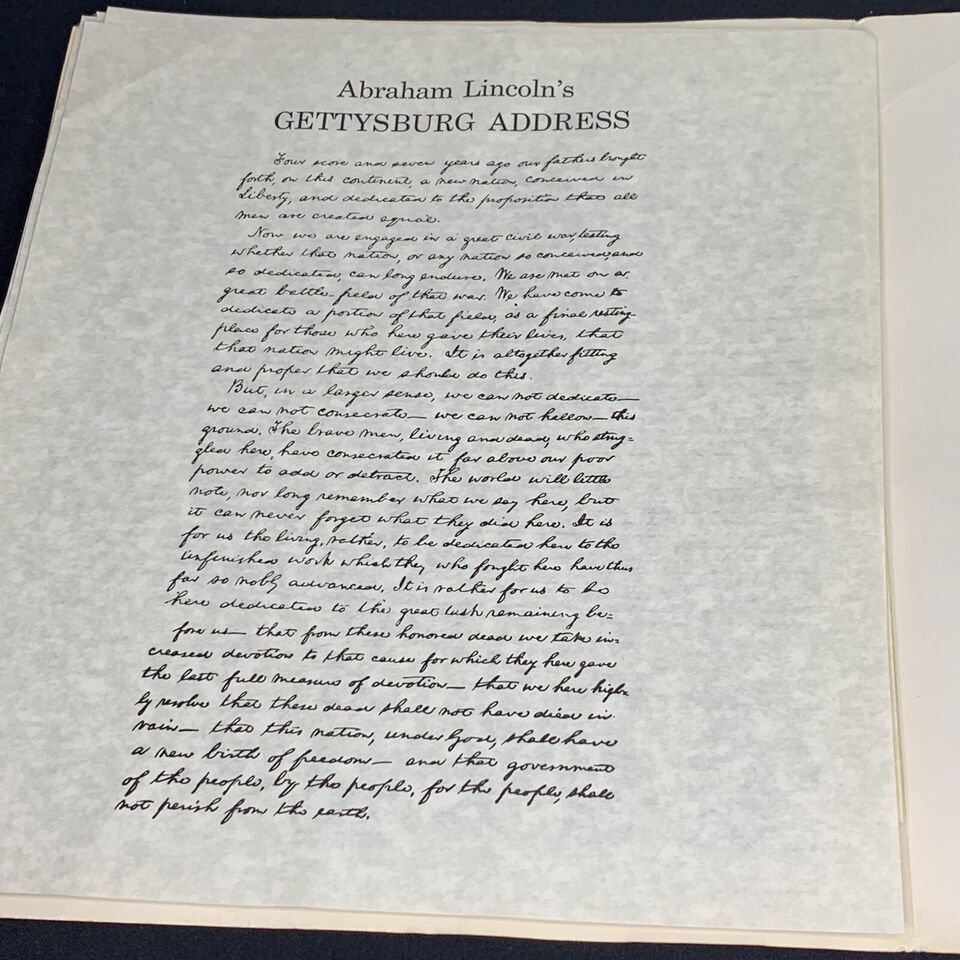 Abraham Lincoln's
GETTYSBURG ADDRESS
Four score and seven years ago our fathers brought
forth, on this continent, a new nation, conceived in
Liberty, and dedicated to the proposition that all
men are created equal.
Now we are engaged in a great civil war, testing
whether that nation, or any nation so conceived and
so dedicated, can long endure. We are met on a
great battle-field of that war. We have come to
dedicate a portion of that field, as a final resting
place for those who here gave their lives, that
that nation might live. It is altogether fitting
and proper that we should do this.
But, in a larger sense, we can not dedicate—
we can not consecrate— we can not hallow— this
ground. The brave men, living and dead, who strug=
gled here, have consecrated it far above our poor
power to add or detract. The world will little
note, nor long remember what we say here, but
it can never forget what they did here. It is
for us the living, rather, to be dedicated here to the
unfinished work which they who fought here have thus
far so nobly advanced. It is rather for us to be
here dedicated to the great task remaining be=
fore us— that from these honored dead we take in=
creased devotion to that cause for which they here gave
the last full measure of devotion— that we here high=
ly resolve that these dead shall not have died in
vain— that this nation, under God, shall have
a new birth of freedom— and that government
of the people, by the people, for the people, shall
not perish from the earth.